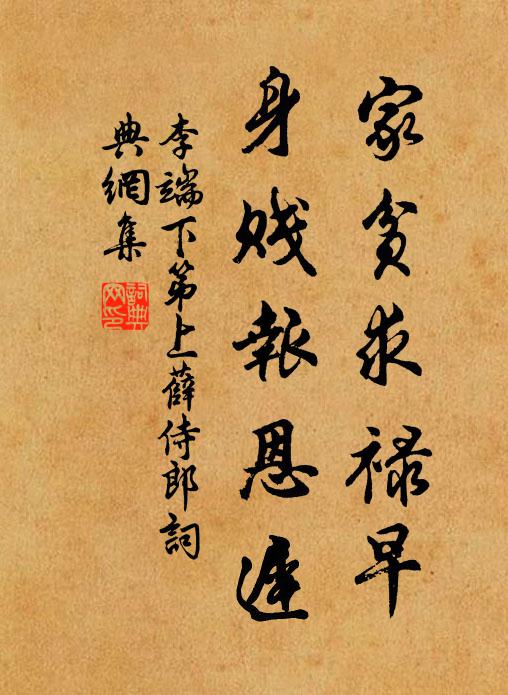 家貧求祿早
身賤報恩遲
李端下第上薛侍郎詞
典網集
詞典網印